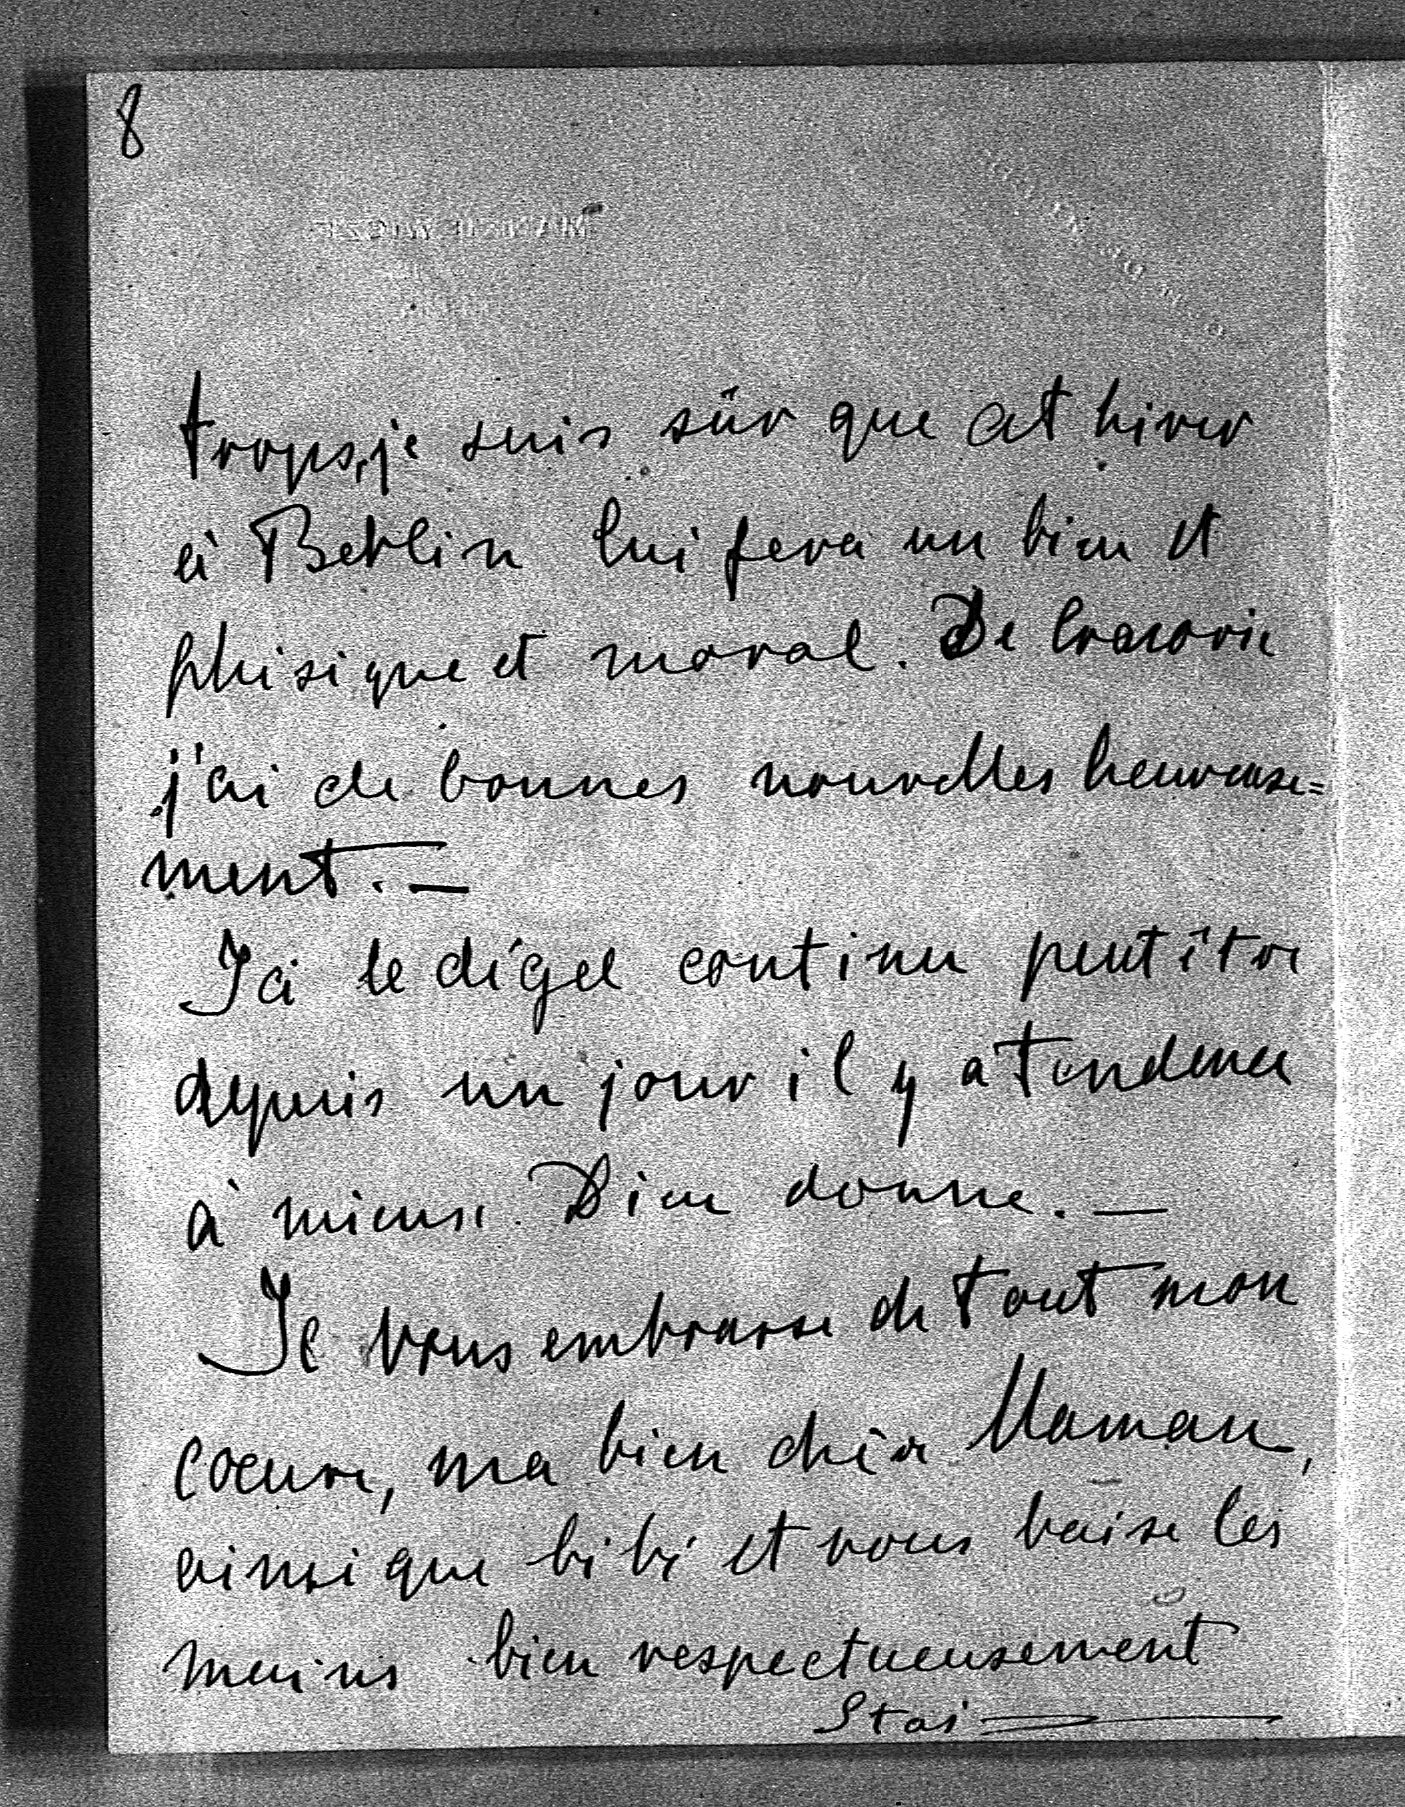 8
trops, je suis sûr que cet hiver
à Berlin lui fera un bien et
phisique et moral. De Cracovie
j'ai de bonnes nouvelles heureuse=
ment. —
Ici le dégel continu peut être
depuis un jour il y a tendence
à mieux. Dieu donne. —
Je vous embrasse de tout mon
coeure, ma bien chèr Maman,
ainsi que bibi et vous baise les
mains bien respectueusement
Stas